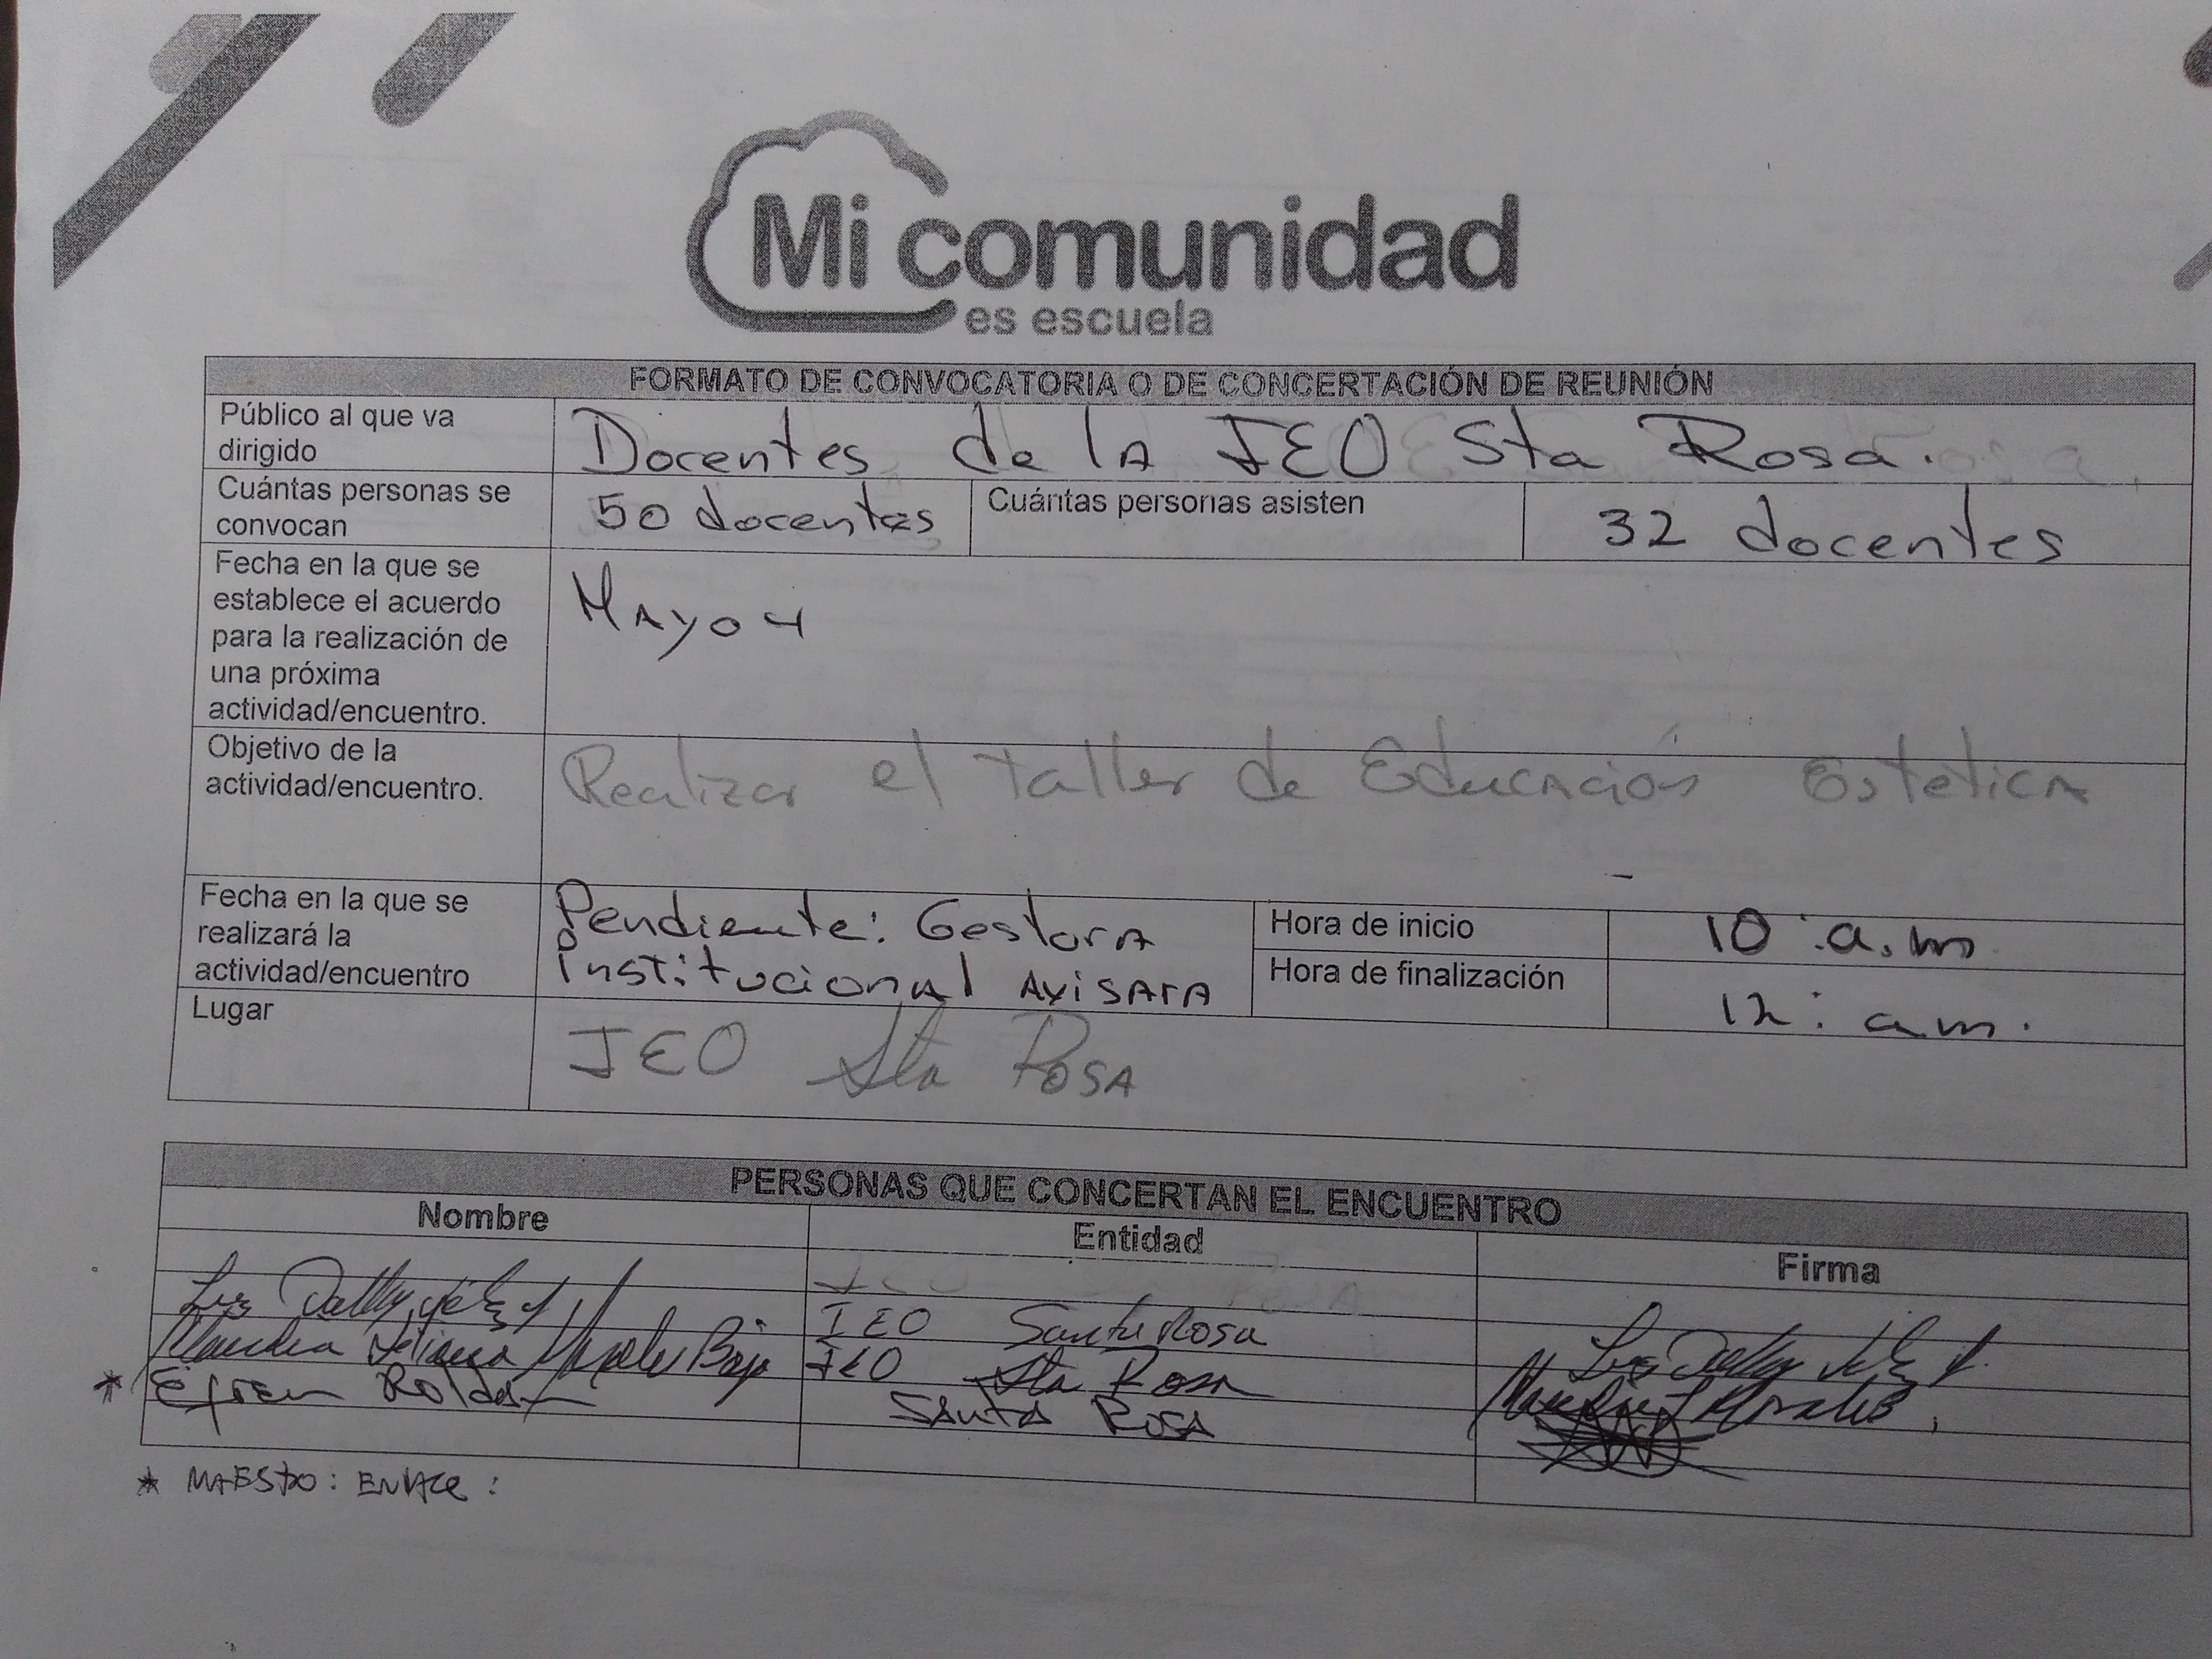 Mi comunidad
es escuela
FORMATO DE CONVOCATORIA O DE CONCERTACIÓN DE REUNIÓN
Público al que va
dirigido
Docentes de la IEO Sta Rosa.
Cuántas personas se
convocan
50 docentes
Cuántas personas asisten
32 docentes
Fecha en la que se
establece el acuerdo
para la realización de
una próxima
actividad/encuentro.
Mayo 4
Objetivo de la
actividad/encuentro.
Realizar el taller de Educación Estética
Fecha en la que se
realizará la
actividad/encuentro
Pendiente: Gestora
Institucional Avisara
Hora de inicio
10 : a.m
Hora de finalización
12 : a.m.
Lugar
IEO Sta Rosa
PERSONAS QUE CONCERTAN EL ENCUENTRO
Nombre Entidad Firma
IEO Santa Rosa
Morales IEO Sta Rosa
* Efren Roldan Santa Rosa
* MAESTRO: ENLACE: